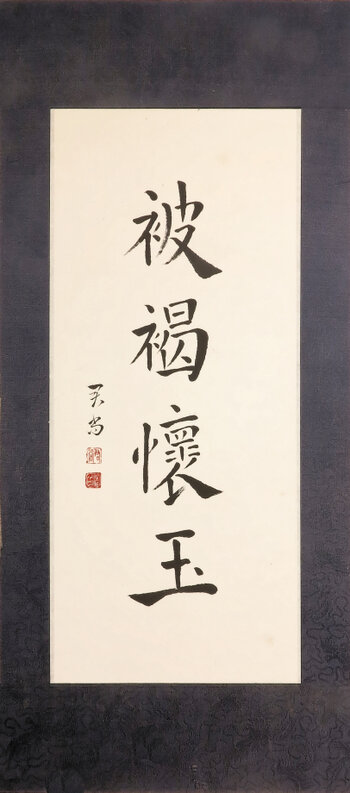 被褐懷玉